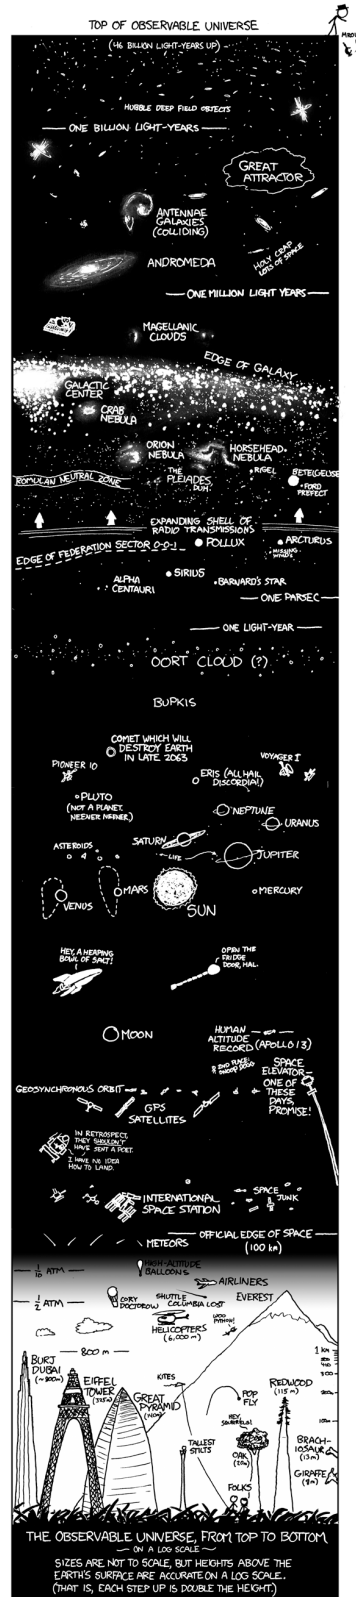 TOP OF OBSERVABLE UNIVERSE
(46 BILLION LIGHT-YEARS UP)
HUBBLE DEEP FIELD OBJECTS
ONE BILLION LIGHT-YEARS
GREAT
ATTRACTOR
ANTENNAE
GALAXIES
(COLLIDING)
HOLY CRAP
LOTS OF SPACE
ANDROMEDA
ONE MILLION LIGHT YEARS
MAGELLANIC
CLOUDS
EDGE OF GALAXY
GALACTIC
CENTER
CRAB
NEBULA
ORION
NEBULA
HORSEHEAD
NEBULA
THE
PLEIADES,
DUH.
RIGEL
BETELGEUSE
FORD
PREFECT
ROMULAN NEUTRAL ZONE
EXPANDING SHELL OF
RADIO TRANSMISSIONS
EDGE OF FEDERATION SECTOR 0-0-1
POLLUX
ARCTURUS
MISSING
WMDS
SIRIUS
ALPHA
CENTAURI
BARNARD'S STAR
ONE PARSEC
ONE LIGHT-YEAR
OORT CLOUD (?)
BUPKIS
COMET WHICH WILL
DESTROY EARTH
IN LATE 2063
PIONEER 10
VOYAGER I
ERIS (ALL HAIL
DISCORDIA!)
PLUTO
(NOT A PLANET,
NEENER NEENER)
NEPTUNE
URANUS
SATURN
ASTEROIDS
LIFE
JUPITER
MARS
VENUS
SUN
MERCURY
HEY, A HEAPING
BOWL OF SALT!
OPEN THE
FRIDGE
DOOR, HAL.
MOON
HUMAN
ALTITUDE
RECORD (APOLLO 13)
2ND PLACE:
SNOOP DOGG
SPACE
ELEVATOR
ONE OF
THESE
DAYS,
PROMISE!
GEOSYNCHRONOUS ORBIT
GPS
SATELLITES
IN RETROSPECT,
THEY SHOULDN'T
HAVE SENT A POET.
I HAVE NO IDEA
HOW TO LAND.
INTERNATIONAL
SPACE STATION
SPACE
JUNK
OFFICIAL EDGE OF SPACE
(100 km)
METEORS
HIGH-ALTITUDE
BALLOONS
1/10 ATM
AIRLINERS
1/2 ATM
CORY
DOCTOROW
SHUTTLE
COLUMBIA LOST
EVEREST
HELICOPTERS
(6,000 m)
WOO
PYTHON!
800 m
1 km
BURJ
DUBAI
(~800m)
EIFFEL
TOWER
(325m)
GREAT
PYRAMID
KITES
POP
FLY
REDWOOD
(115 m)
HEY,
SQUIRRELS!
OAK
(20m)
TALLEST
STILTS
FOLKS
BRACH-
IOSAUR
(13m)
GIRAFFE
(8m)
THE OBSERVABLE UNIVERSE, FROM TOP TO BOTTOM
ON A LOG SCALE
SIZES ARE NOT TO SCALE, BUT HEIGHTS ABOVE THE
EARTH'S SURFACE ARE ACCURATE ON A LOG SCALE.
(THAT IS, EACH STEP UP IS DOUBLE THE HEIGHT.)